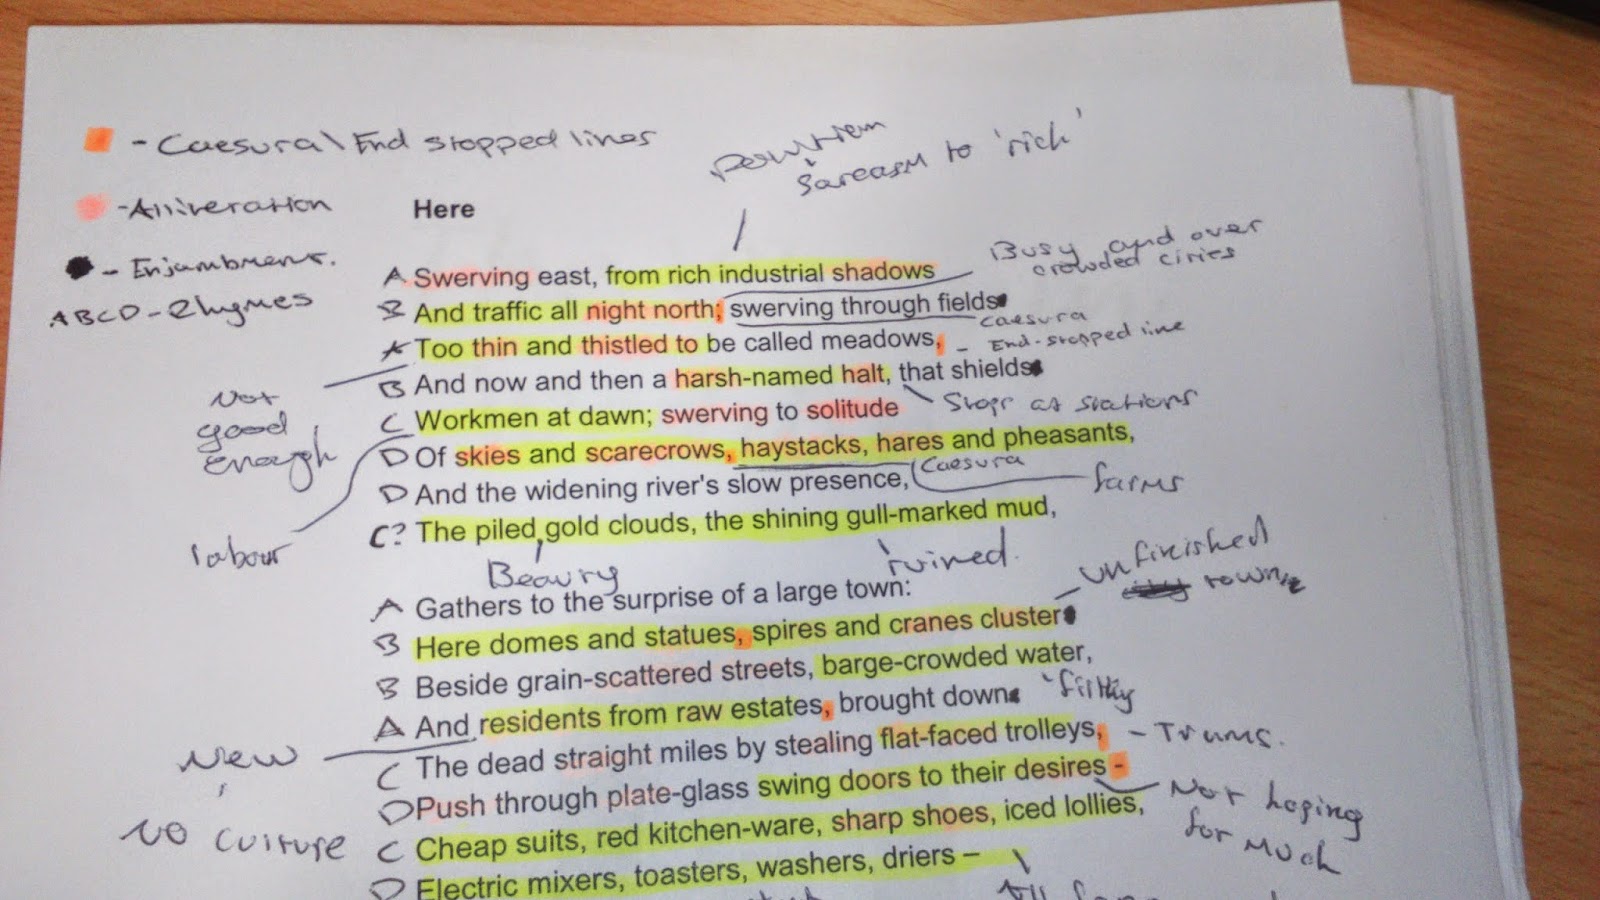 - Caesura \ End stopped lines
- Alliteration
Here
- Enjambment.
ABCD - Rhymes
sarcasm to 'rich'
Busy and over
crowded cities
A Swerving east, from rich industrial shadows
B And traffic all night north; swerving through fields
caesura
End-stopped line
A Too thin and thistled to be called meadows,
B And now and then a harsh-named halt, that shields
Not
good
enough
Stops at stations
C Workmen at dawn; swerving to solitude
D Of skies and scarecrows, haystacks, hares and pheasants,
Caesura
farms
D And the widening river's slow presence,
C? The piled gold clouds, the shining gull-marked mud,
labour
Beauty
ruined.
unfinished
town
A Gathers to the surprise of a large town:
B Here domes and statues, spires and cranes cluster
B Beside grain-scattered streets, barge-crowded water,
filthy
A And residents from raw estates, brought down
New
NO culture
C The dead straight miles by stealing flat-faced trolleys,
- Trams.
D Push through plate-glass swing doors to their desires -
Not hoping
for much
C Cheap suits, red kitchen-ware, sharp shoes, iced lollies,
D Electric mixers, toasters, washers, driers –
All